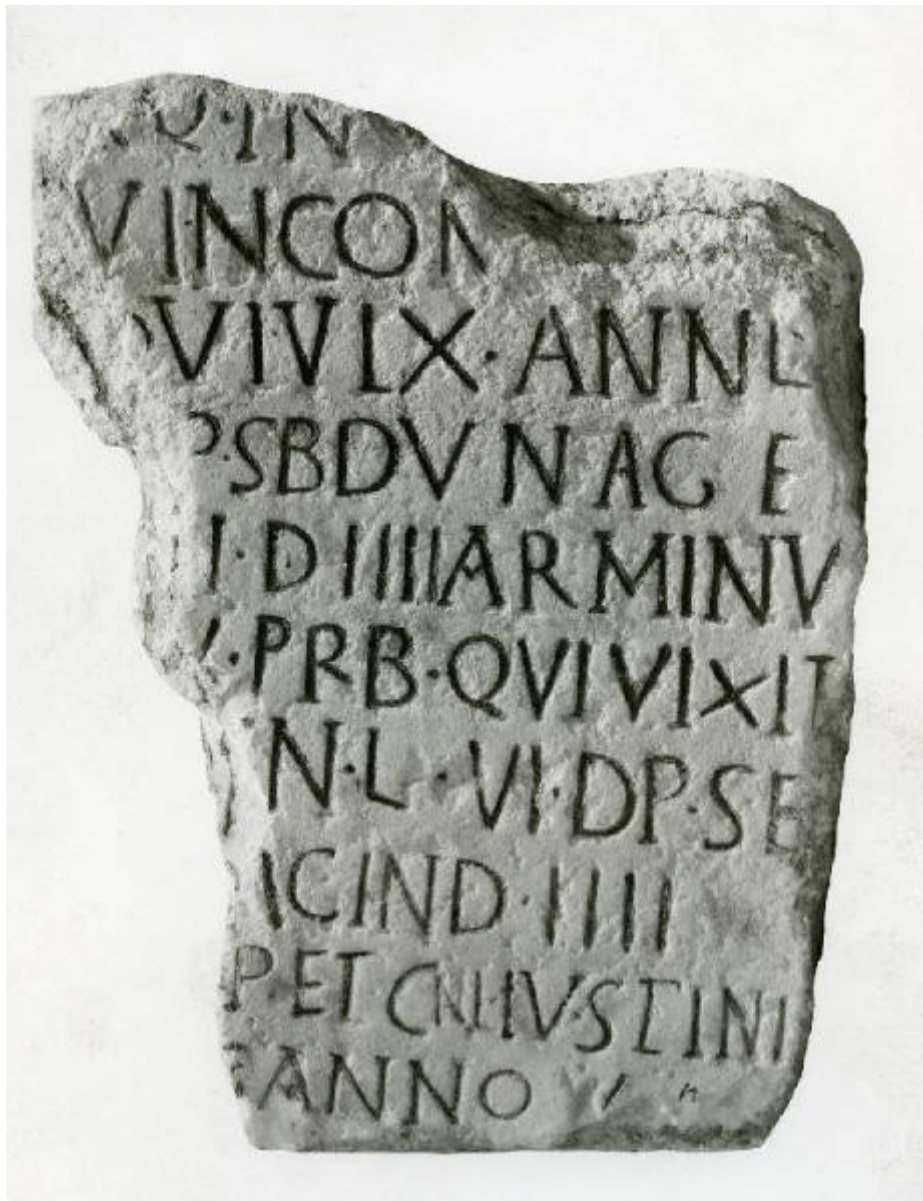 Q·IN
VINCON
QVIVIX·ANNL
P·SBDVNAGE
I·DIIIIARMINV
·PRB·QVIVIXIT
N·L·VI·DP·SE
ICIND·IIII
PETCNHIVSTINI
ANNO